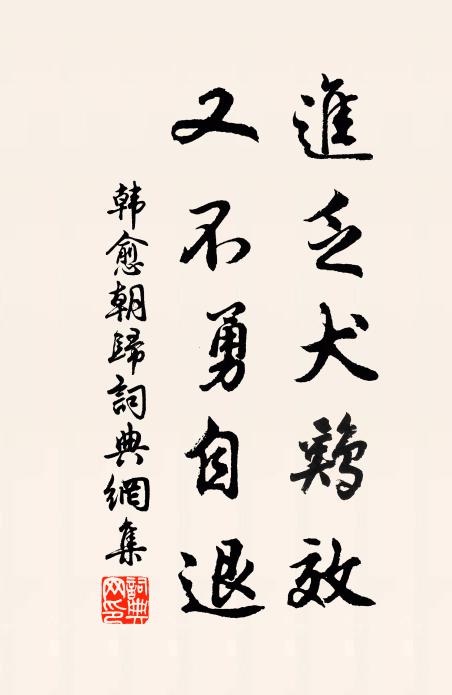 進乏犬鷄效
又不勇自退
韩愈朝歸詞典網集
詞典網印